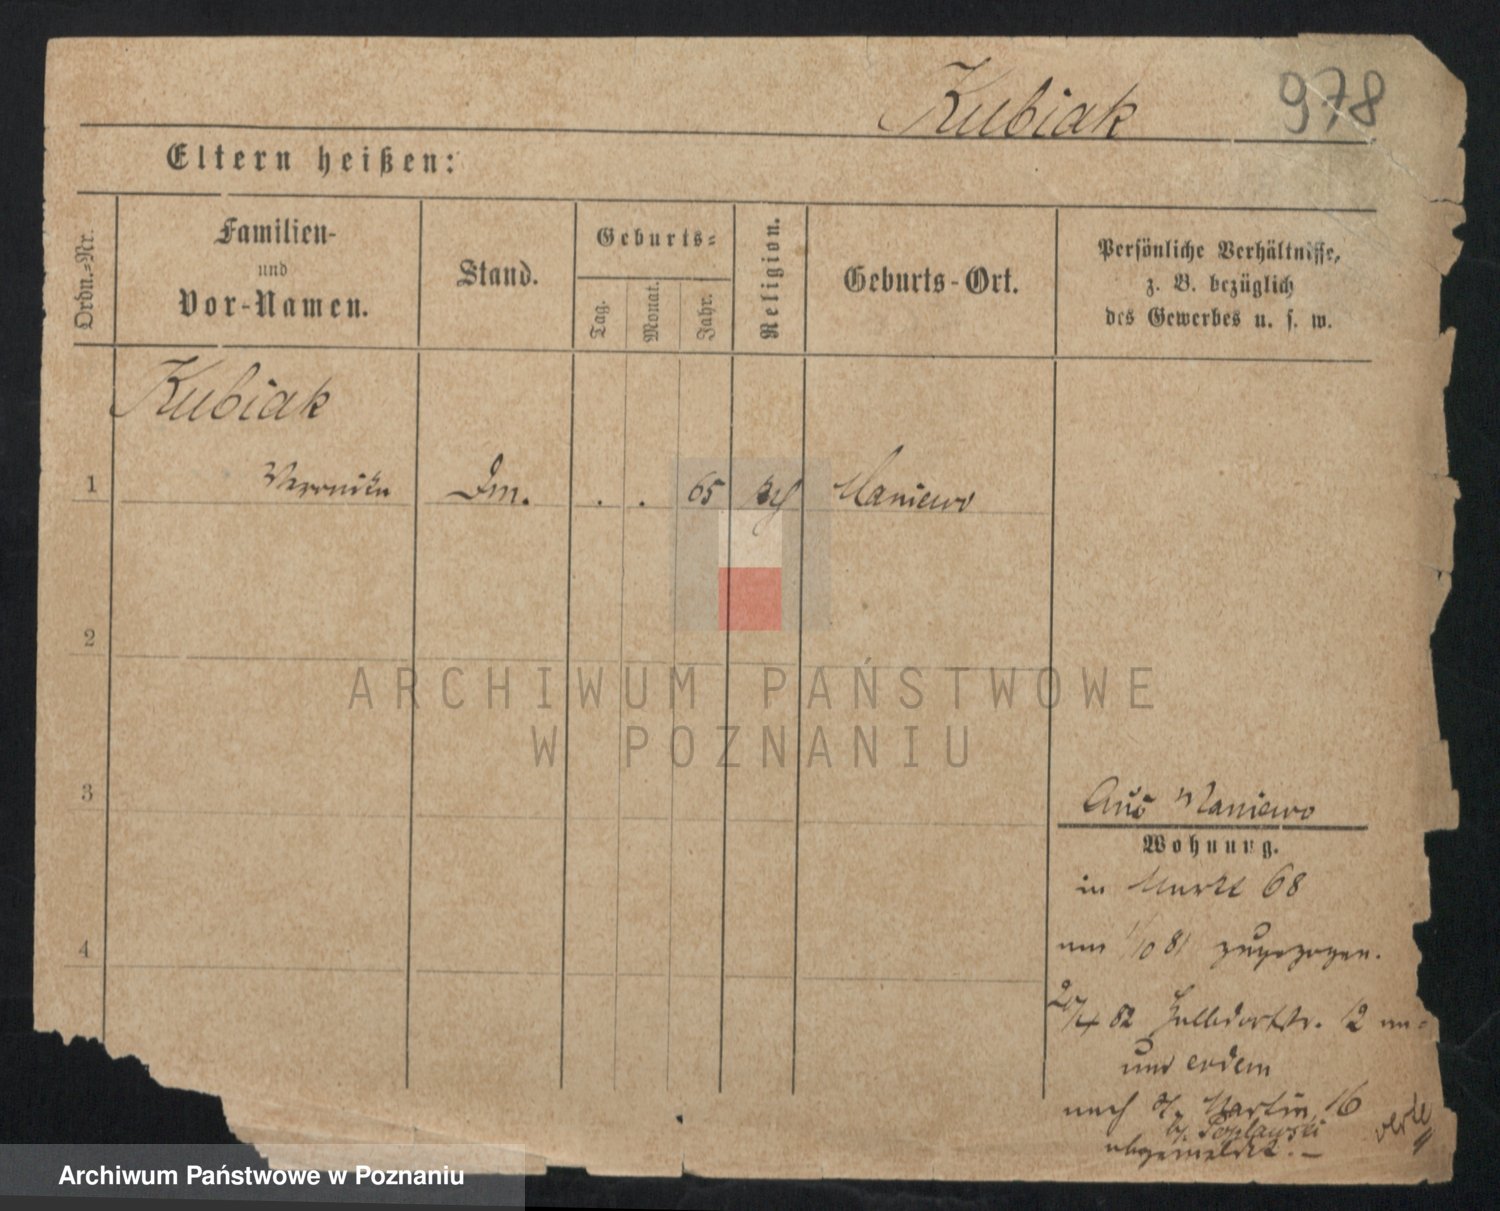 Kubiak 978
Eltern heißen:
Ordn.=Nr.
Familien-
und
Vor-Namen.
Stand.
Geburts=
Tag.
Monat.
Jahr.
Religion.
Geburts-Ort.
Persönliche Verhältnisse,
z. B. bezüglich
des Gewerbes u. s. w.
Kubiak
1 Veronika . . 65 Maniewo
2
3
4
Aus Maniewo
Wohnung.
in Markt 68
am 1/10 81 zugezogen.
82 Halbdorfstr. 12 an=
und
nach St. Martin 16
b.
abgemeldet. –
verte
ARCHIWUM PAŃSTWOWE
W POZNANIU
Archiwum Państwowe w Poznaniu